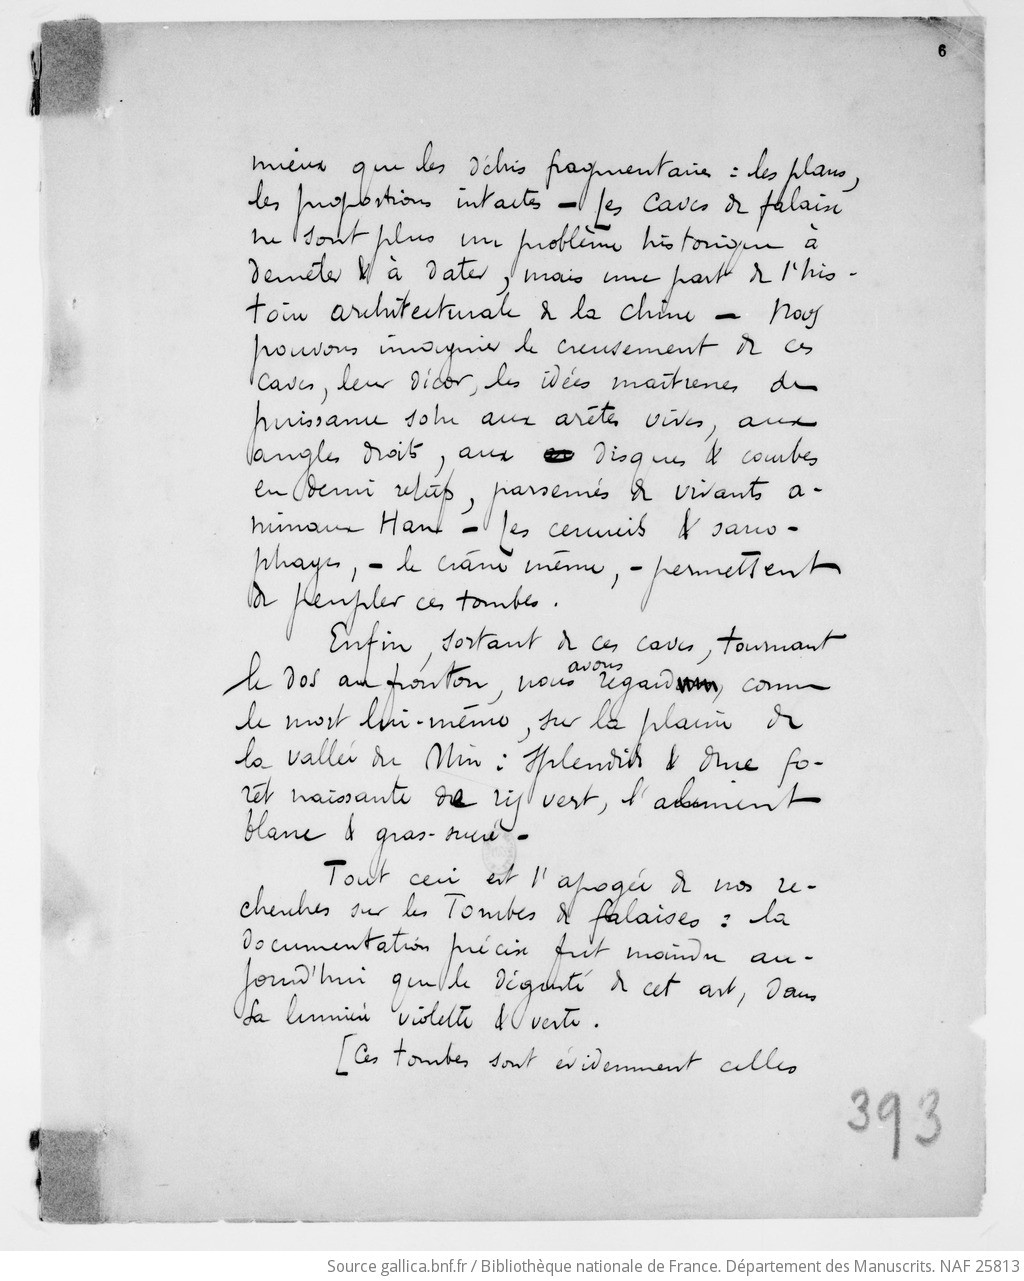 6
mieux que les débris fragmentaires : les plans,
les proportions intactes — Les caves de falaise
ne sont plus un problème historique à
démêler & à dater, mais une part de l'his-
toire architecturale de la Chine — Nous
pouvons imaginer le creusement de ces
caves, leur décor, les idées maîtresses de
puissance sobre aux arêtes vives, aux
angles droits, aux disques & courbes
en demi reliefs, parsemés de vivants a-
nimaux Han — Les cercueils & sarco-
phages, — le crâne même, — permettent
de peupler ces tombes.
Enfin, sortant de ces caves, tournant
le dos au fronton, nous avons regard, comme
le mort lui-même, sur la plaine de
la vallée du Min : splendide & drue fo-
rêt naissante de riz vert, l'aliment
blanc & gras-sucré —
Tout ceci est l'apogée de nos re-
cherches sur les Tombes de falaises : la
documentation précise fut moindre au-
jourd'hui que le de cet art, dans
sa lumière violette & verte.
[Ces tombes sont évidemment celles
393
Source gallica.bnf.fr / Bibliothèque nationale de France. Département des Manuscrits. NAF 25813